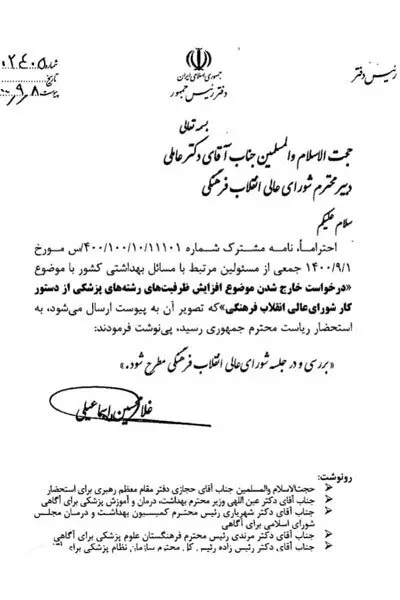 جمهوری اسلامی ایران
دفتر رئیس جمهور
رئیس دفتر
شماره
تاریخ
پیوست
بسمه تعالی
حجت الاسلام والمسلمین جناب آقای دکتر عاملی
دبیر محترم شورای عالی انقلاب فرهنگی
سلام علیکم
احتراماً، نامه مشترک شماره ۴۰۰/۱۰۰/۱۰/۱۱۱۰۱/س مورخ
۱۴۰۰/۹/۱ جمعی از مسئولین مرتبط با مسائل بهداشتی کشور با موضوع
«درخواست خارج شدن موضوع افزایش ظرفیت‌های رشته‌های پزشکی از دستور
کار شورای‌عالی انقلاب فرهنگی» که تصویر آن به پیوست ارسال می‌شود، به
استحضار ریاست محترم جمهوری رسید، پی‌نوشت فرمودند:
« بررسی و در جلسه شورای عالی انقلاب فرهنگی مطرح شود. »
غلامحسین اسماعیلی
رونوشت:
حجت‌الاسلام والمسلمین جناب آقای حجازی دفتر مقام معظم رهبری برای استحضار
جناب آقای دکتر عین اللهی وزیر محترم بهداشت، درمان و آموزش پزشکی برای آگاهی
جناب آقای دکتر شهریاری رئیس محترم کمیسیون بهداشت و درمان مجلس
شورای اسلامی برای آگاهی
جناب آقای دکتر مرندی رئیس محترم فرهنگستان علوم پزشکی برای آگاهی
جناب آقای دکتر رئیس زاده رئیس کل محترم سازمان نظام پزشکی برای